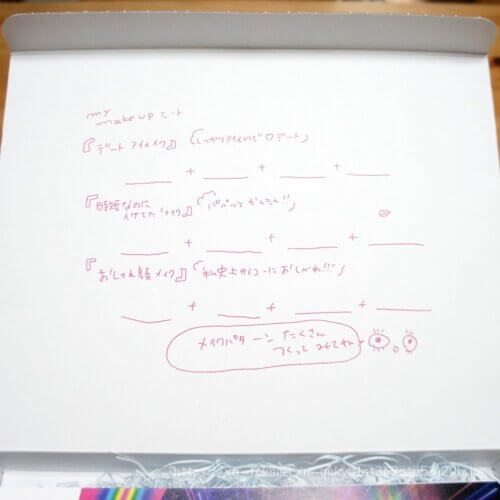 my
make up シート
『デート アイメイク』 「しっかりアイメイクで♡デート」
+ + +
『時短なのに
イケてた!メイク』 「パパッと かんたん!!」
+ + +
『おしゃれ顔メイク』 「私史上サイコーにおしゃれ!!!」
+ + +
メイクパターン たくさん
つくって みてね